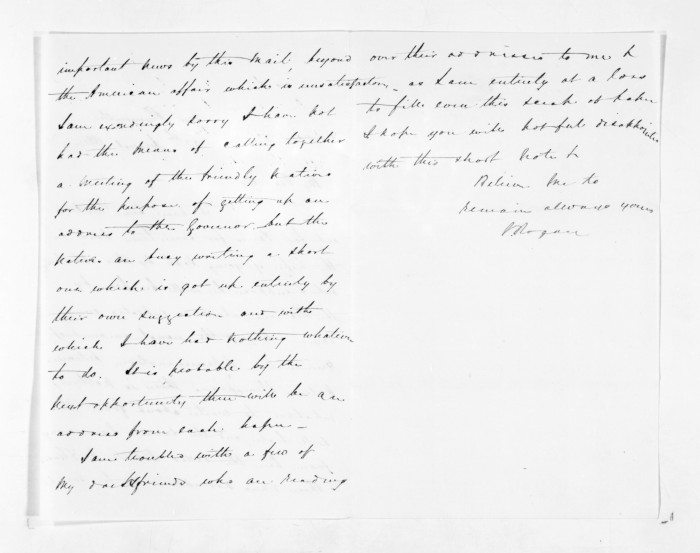 important news by this Mail, beyond
the American affair which is unsatisfactory.
I am exceedingly sorry I have not
had the means of calling together
a Meeting of the friendly Natives
for the purpose of getting up an
address to the Governor but the
Natives are busy writing a short
one which is got up entirely by
their own suggestion and with
which I have had nothing whatever
to do. It is probable by the
next opportunity there will be an
address from each hapu —
I am troubled with a few of
My dark friends who are reading
over their addresses to me &
as I am entirely at a loss
to fill even this scrap of paper
I hope you will not feel disappointed
with this short Note &
Believe me to
remain always yours
J Rogan